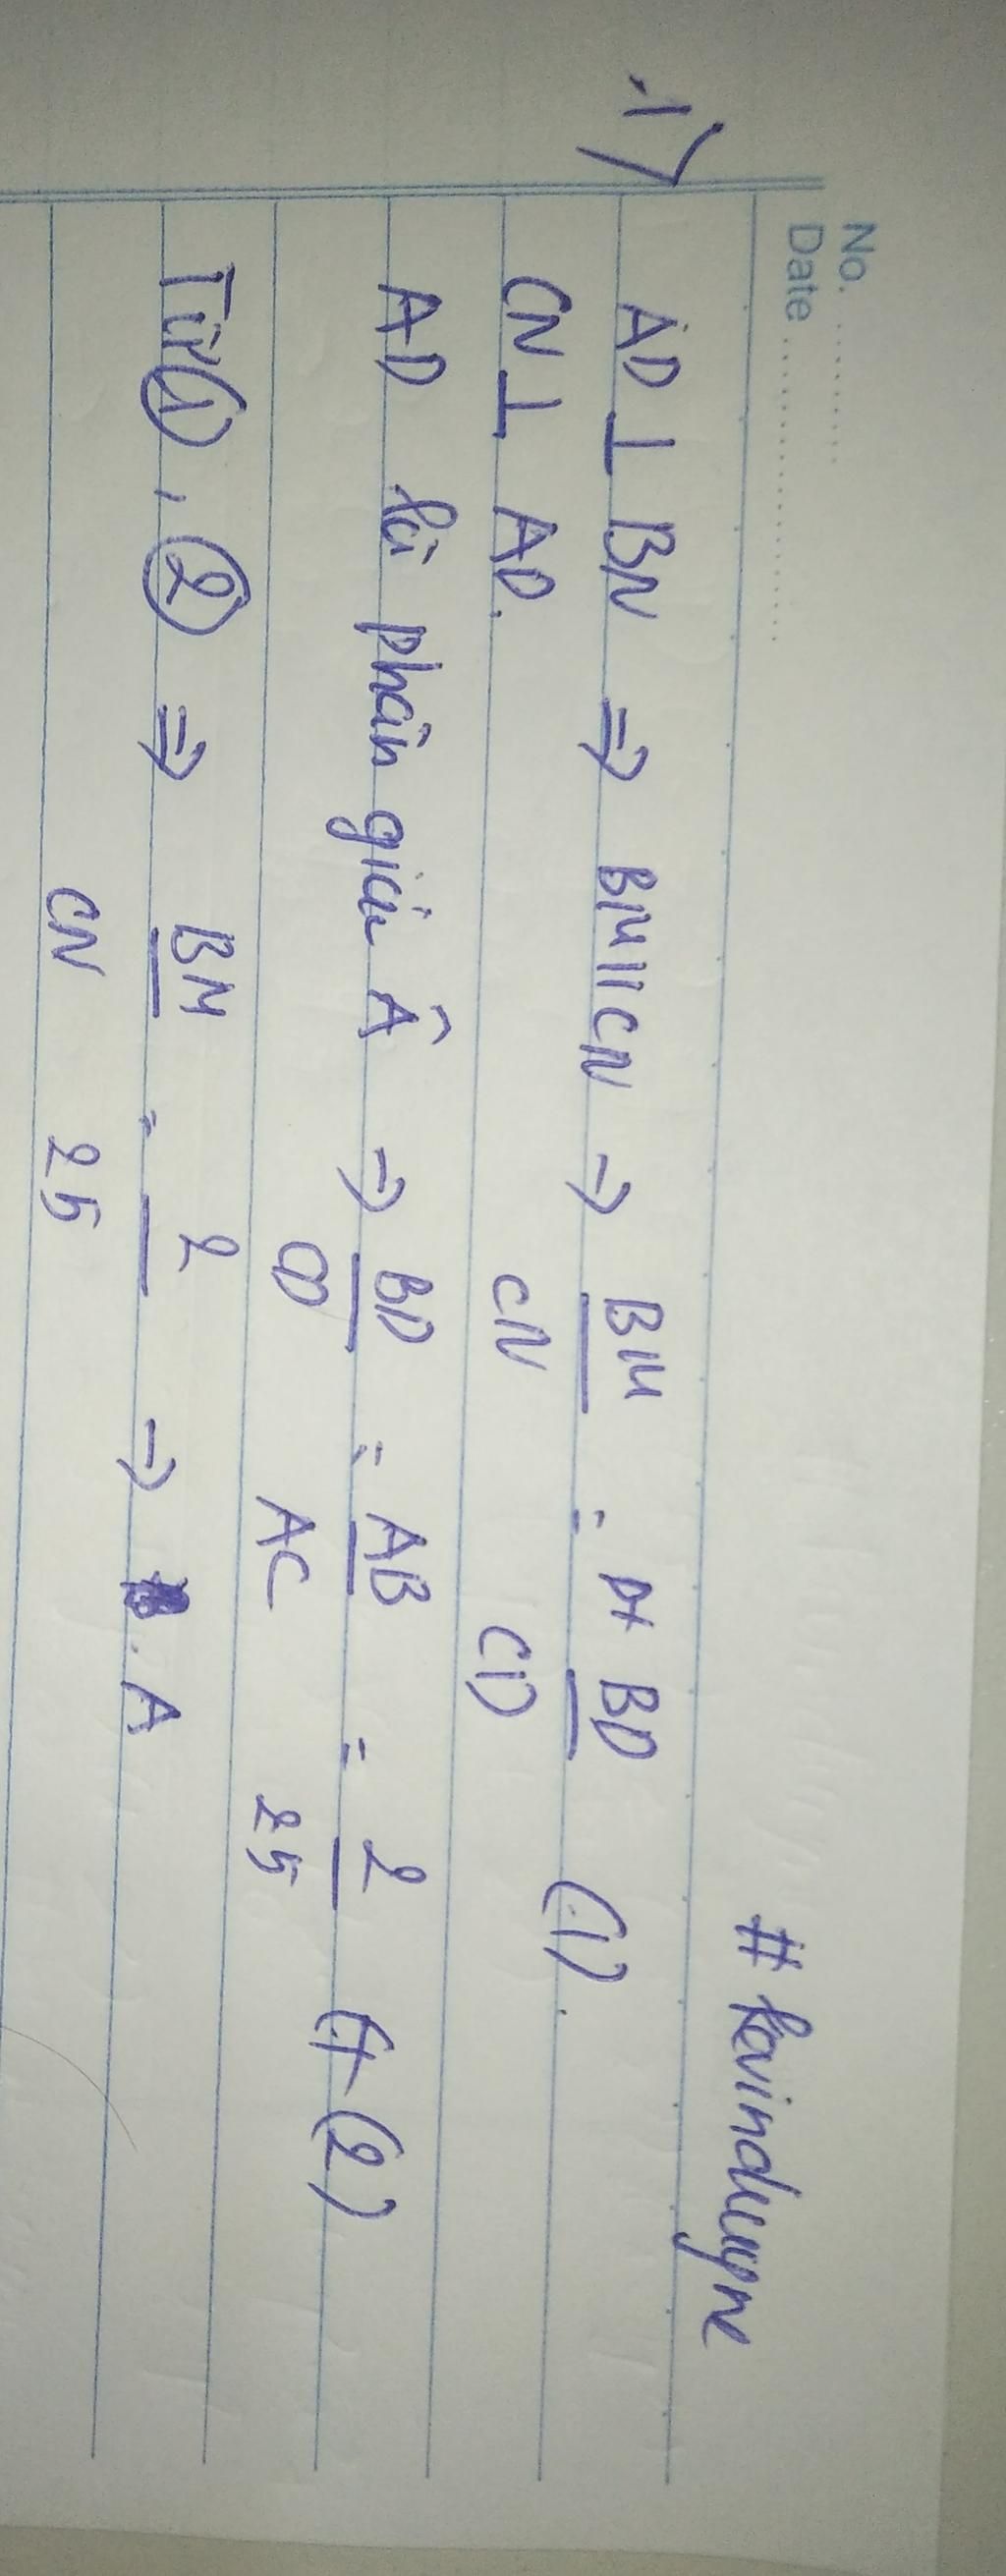 No. ............
Date .....................
# kevinduyne
1) AD ⊥ BN ⇒ BM // CN ⇒ BM / CN = BD / CD (1).
CN ⊥ AD.
AD là phân giác Â ⇒ BD / CD = AB / AC = 2 / 25 (2)
Từ (1), (2) ⇒ BM / CN = 2 / 25 ⇒ A